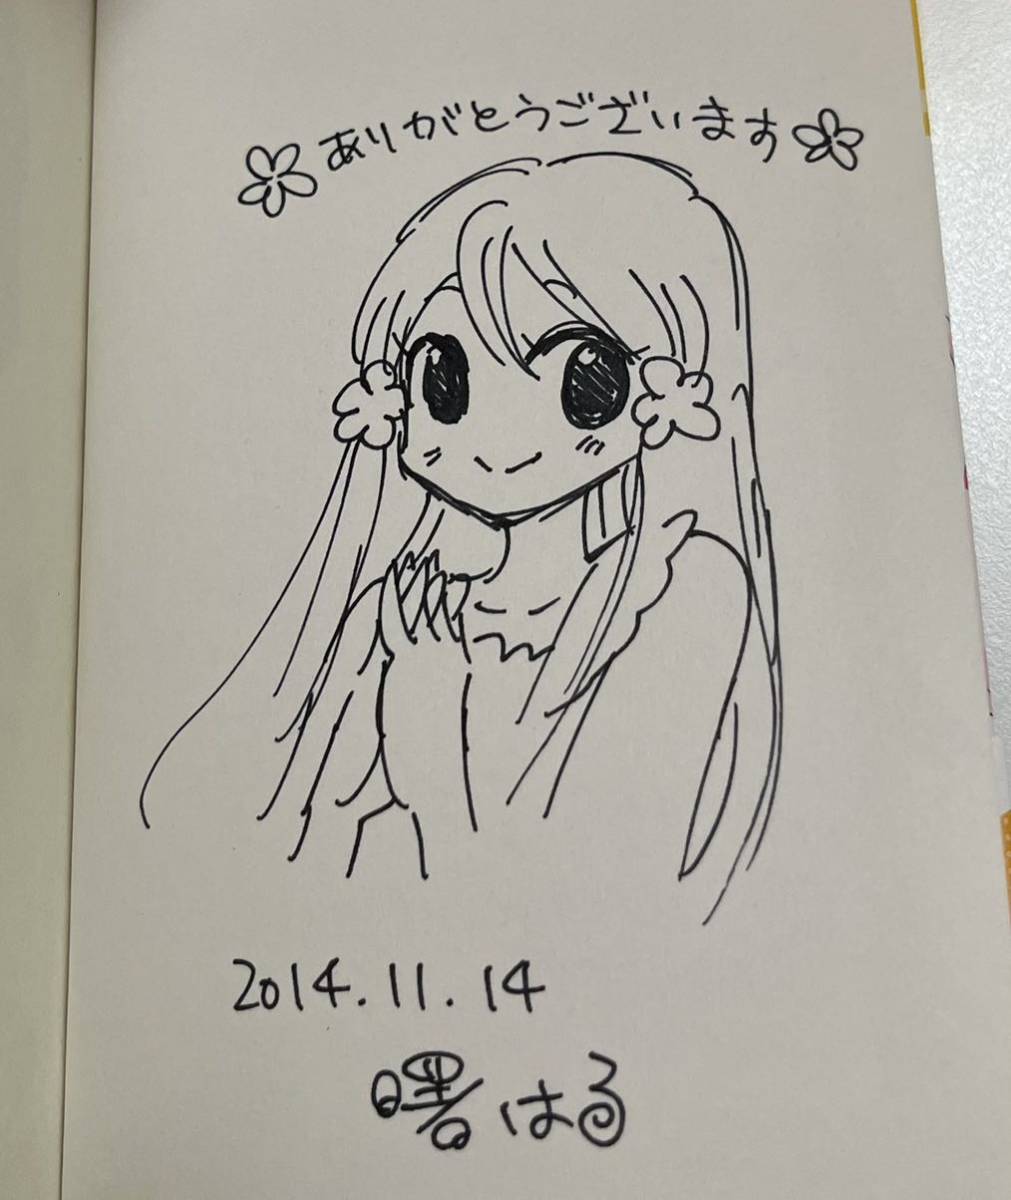 ありがとうございます
2014.11.14
曙はる